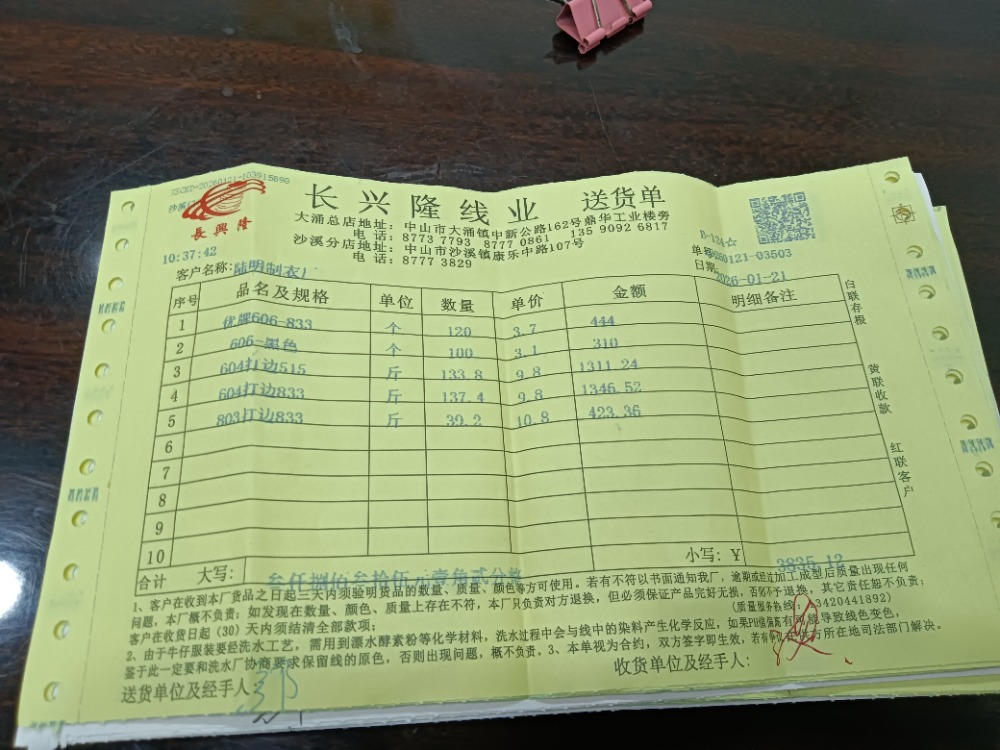 XSCKD-20260121-103915890
沙溪
長興隆
长兴隆线业 送货单
大涌总店地址：中山市大涌镇中新公路162号鼎华工业楼旁
电 话：8773 7793 8777 0861 135 9092 6817
沙溪分店地址：中山市沙溪镇康乐中路107号
电 话：8777 3829
B-124☆
10:37:42
单号260121-03503
客户名称：陆明制衣厂
日期2026-01-21
序号 品名及规格 单位 数量 单价 金额 明细备注
1 优牌606-833 个 120 3.7 444
2 606-黑色 个 100 3.1 310
3 604打边515 斤 133.8 9.8 1311.24
4 604打边833 斤 137.4 9.8 1346.52
5 803打边833 斤 39.2 10.8 423.36
6
7
8
9
10
白联存根
黄联收款
红联客户
合计 大写： 叁仟捌佰叁拾伍元壹角贰分 小写：￥ 3835.12
1、客户在收到本厂货品之日起三天内须验明货品的数量、质量、颜色等方可使用。若有不符以书面通知我厂，逾期或经过加工成型后质量出现任何
问题，本厂概不负责；如发现在数量、颜色、质量上存在不符，本厂只负责对方退换，但必须保证产品完好无损，否则不予退换，其它责任恕不负责；
客户在收货日起（30）天内须结清全部款项； （质量服务热线：13420441892）
2、由于牛仔服装要经洗水工艺，需用到漂水酵素粉等化学材料，洗水过程中会与线中的染料产生化学反应，如果PH值偏高有可能导致线色变色，
鉴于此一定要和洗水厂协商要求保留线的原色，否则出现问题，概不负责。3、本单视为合约，双方签字即生效，若有 所在地司法部门解决。
送货单位及经手人
收货单位及经手人：